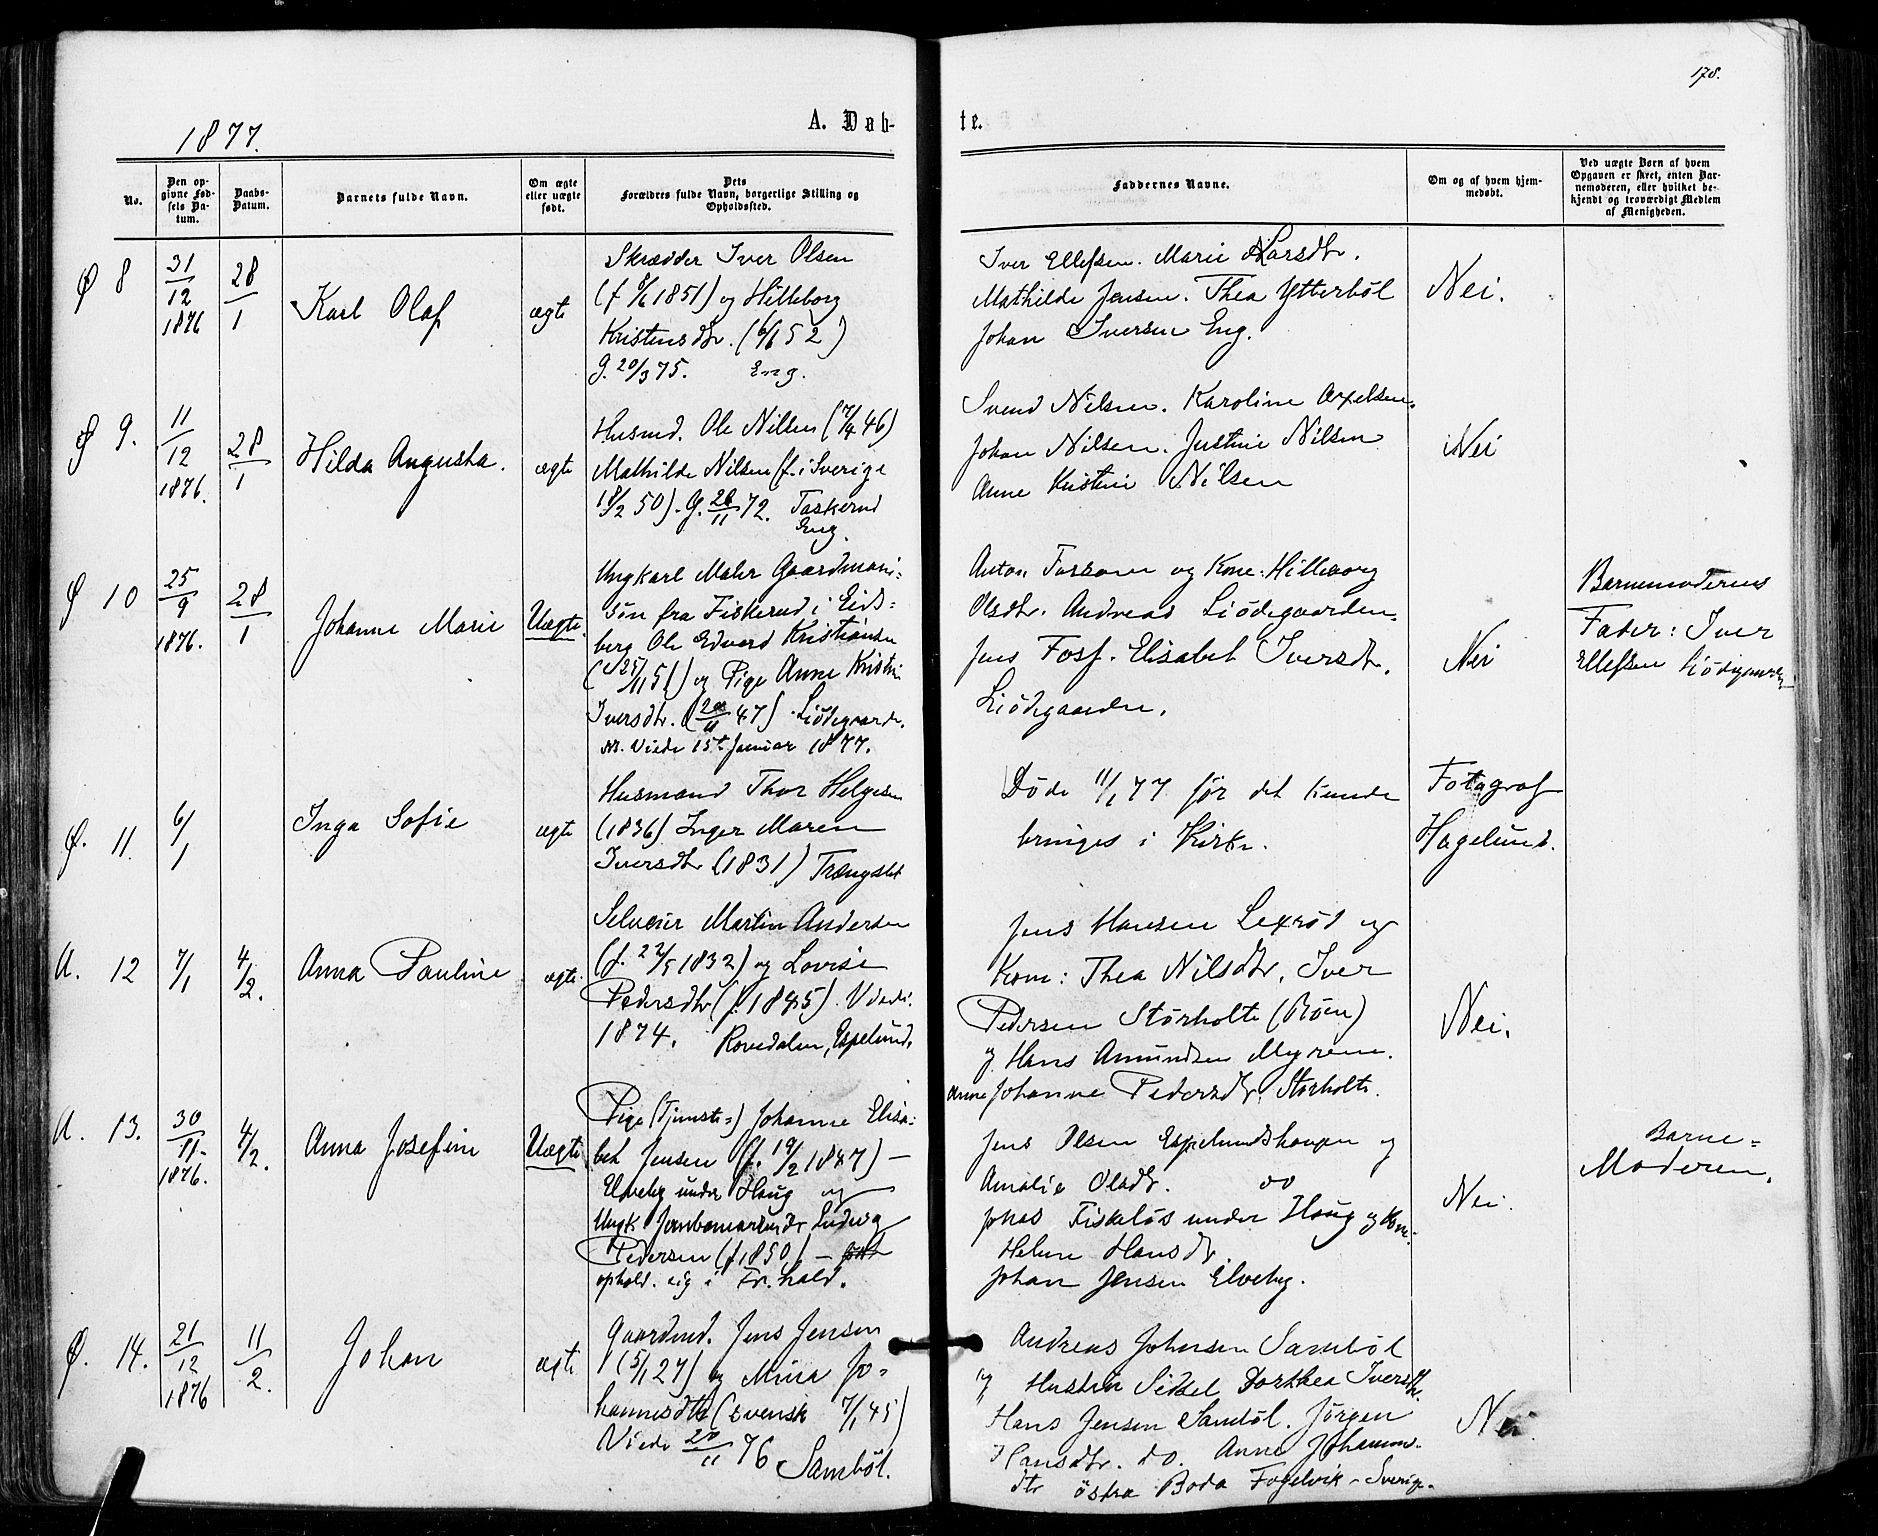 178.
1877.
A. Døb-
te.
No.
Den op-
givne Fød-
sels Da-
tum.
Daabs-
Datum.
Barnets fulde Navn.
Om ægte
eller uægte
født.
Dets
Forældres fulde Navn, borgerlige Stilling og
Opholdssted.
Faddernes Navne.
Om og af hvem hjem-
medøbt.
Ved uægte Børn af hvem
Opgaven er skret, enten Bar-
nemoderen, eller hvilket be-
kjendt og troværdigt Medlem
af Menigheden.
Ø 8
31
12
1876
28
1
Karl Olaf
ægte
Skrædder Iver Olsen
1851) og Hilleborg
Kristensdtr. 52)
g. 20/3 75. Eng.
Iver Ellefsen. Marie Larsdtr.
Mathilde Jensen. Thea Ytterbøl
Johan Iversen Eng.
Nei.
Ø 9.
11
12
1876.
28
1
Hilda Augusta.
ægte
Husmd. Ole Nilsen (7/4 46)
Mathilde Nilsen (f. i Sverige
18/2 50). G. 28/11 72. Taskerud
Eng.
Svend Nilsen. Karoline Axelsen.
Johan Nilsen. Justine Nilsen
Anne Kristine Nilsen
Nei
Ø 10
25
9
1876.
28
1
Johanne Marie
Uægte.
Ungkarl Maler Gaardmands-
søn fra Fiskerud i Eids-
berg Ole Edvard Kristiansen
(25/11 51) og Pige Anne Kristine
Iversdtr. 47) Liödegaarden.
NB. Viede 15de Januar 1877.
Anton Fossom og Kone: Hilleborg
Olsdtr. Andreas Liödegaarden.
Jens Foss. Elisabet Iversdtr.
Liödegaarden.
Nei
Barnemoderens
Fader: Iver
Ellefsen Liödegaarden
Ø. 11.
6/
1
Inga Sofie
ægte
Husmand Thor Helgesen
(1836) Inger Maren
Iversdtr (1831) Trængslet
Døde 11/1 77 før det kunde
bringes i Kirke.
Fotograf
Hagelund.
A. 12
7/1
4/2.
Anna Pauline
ægte.
Selveier Martin Andersen
(f. 22/5 1832) og Lovise
Pedersdtr (f. 1845). Viede
1874. Rovedalen, Espelund.
Jens Hansen Lexrød og
Kone: Thea Nilsdtr, Iver
Pedersen Störholte (Röen)
og Hans Amundsen Myrene.
Anne Johanne Pedersdtr Storholte.
Nei.
A. 13.
30
11.
1876.
4/2.
Anna Josefine
Uægte
Pige (Tjeneste=) Johanne Elisa-
bet Jensen (f. 19/2 1847) —
Elveby under Haug og
Ungk Jernbanearbeider Ludvig
Pedersen (f. 1850) —
ophold. sig i Fr.hald.
Jens Olsen Espelundshaugen og
Amalie Olsdtr. do
Johas Fiskeløs under Haug og Kone:
Helene Hansdtr
Johan Jensen Elveby.
Nei.
Barne=
Moderen.
Ø. 14.
21
12
1876
11
2.
Johan
ægte
Gaardmd. Jens Jensen
(5/1 27) og Mina Jo-
hannesdtr (svensk 7/1 45)
Viede 20/11 76. Sambøl.
Andreas Johnsen Sambøl
og Hustru Sidsel Dorthea Iversdtr.
Hans Jensen Sambøl. Jørgen
Hansdtr. do. Anne Johannes-
dtr østra Boda Fogelvik - Sverige.
Nei.